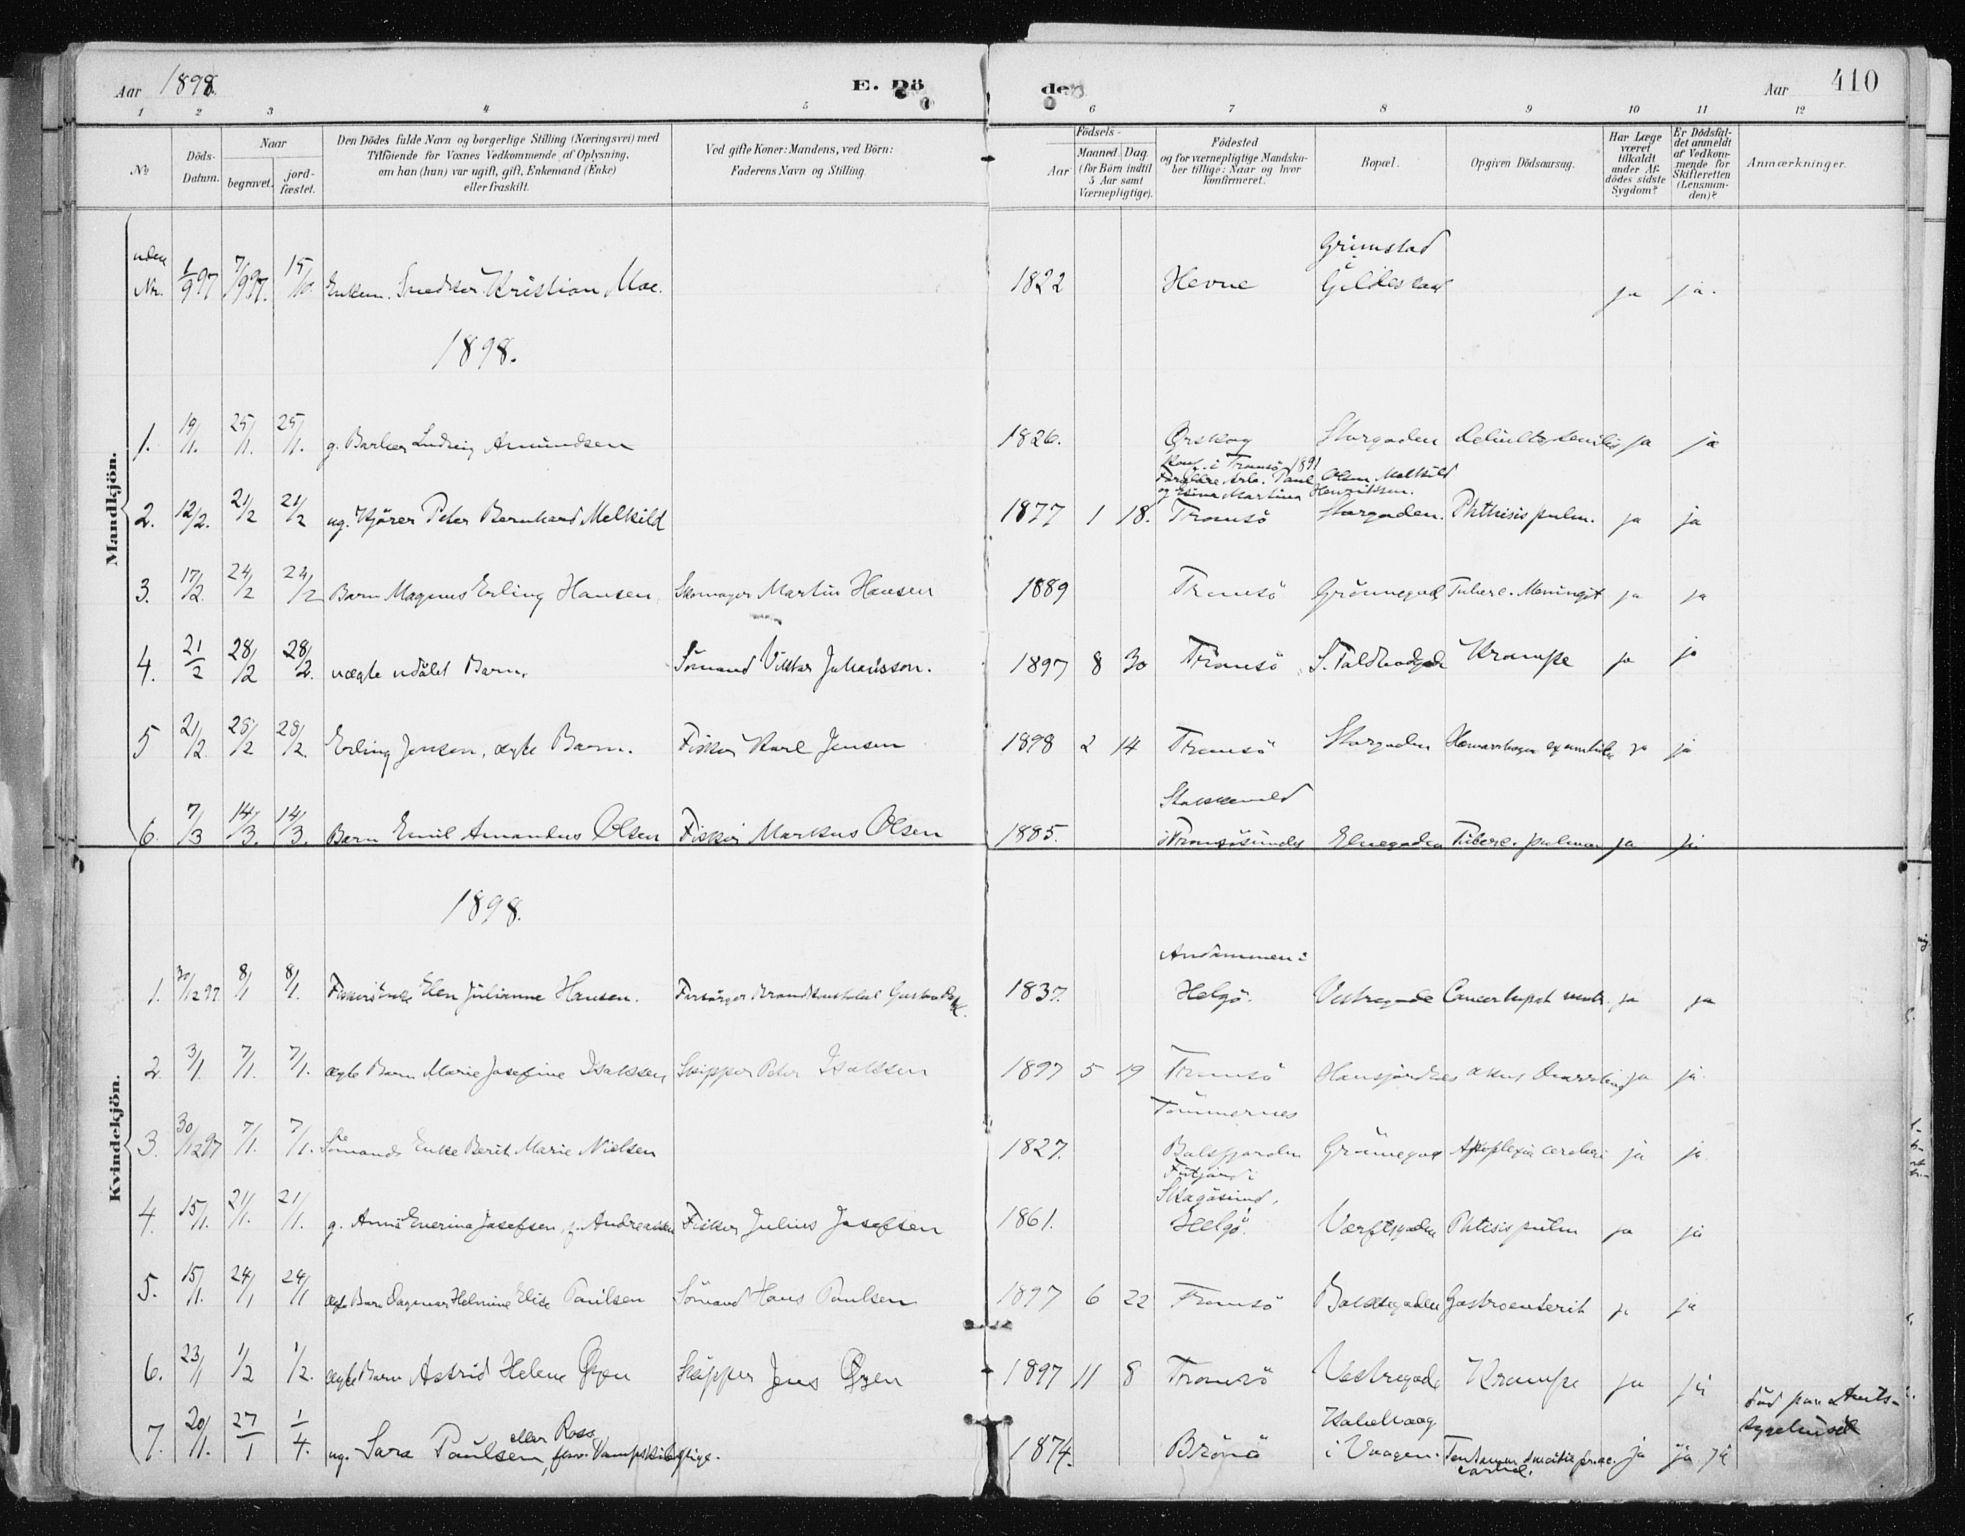 Aar 1898. E. Dö
den Aar 410
1 2 3 4 5 6 7 8 9 10 11 12
No
Döds-Datum.
Naar
begravet.
jord-fæstet.
Den Dödes fulde Navn og borgerlige Stilling (Næringsvei) med
Tilföiende for Voxnes Vedkommende af Oplysning,
om han (hun) var ugift, gift, Enkemand (Enke)
eller fraskilt.
Ved gifte Koner: Mandens, ved Börn:
Faderens Navn og Stilling.
Födsels-
Aar
Maaned Dag
(for Börn indtil
5 Aar samt
Værnepligtige).
Födested
og for værnepligtige Mandska-
ber tillige: Naar og hvor
konfirmeret.
Bopæl.
Opgiven Dödsaarsag.
Har Læge
været
tilkaldt
under Af-
dödes sidste
Sygdom?
Er Dödsfal-
det anmeldt
af Vedkom-
mende for
Skifteretten
(Lensman-
den)?
Anmærkninger.
Mandkjön.
uden Nr. 1/9 97 7/9 97. 15/10. Enkem. Snedker Kristian Moe. 1822 Hevne Grimstad i Gildeskaal ja ja.
1898.
1. 19/1. 25/1. 25/1. g. Barber Ludvig Amundsen 1826. Ørskog Storgaden senilis ja ja
Konf. i Tromsö 1891
Forældre Arb. Paul Olsen Melkild
og Martina Henriksen.
2. 12/2. 21/2 21/2 ug. Kjører Peter Bernhard Melkild 1877 1 18. Tromsö Storgaden. Phthisis pulm. ja ja
3. 17/2. 24/2 24/2 Barn Magnus Erling Hansen. Skomager Martin Hansen 1889 Tromsö Grönnegad Tuberc. Meningit ja ja
4. 21/2 28/2 28/2. uægte udöbt Barn. Sömand Viktor Johansson. 1897 8 30 Tromsö S. Krampe ja ja
5 21/2. 28/2 28/2. Erling Jensen, ægte Barn. Fisker Karl Jensen 1898 2 14 Tromsö Storgaden ja ja
6. 7/3 14/3. 14/3. Barn Emil Amandus Olsen Fisker Markus Olsen 1885. Stakkevold i Tromsösundet Elvegaden Tuberc. pulmon ja ja
Kvindekjön.
1898.
1. 30/12 97 8/1 8/1. Elen Julianne Hansen. Forsörger Gustav 1837. Andammen i Helgö. Vestregade Cancer hepat ventr. ja ja
2. 3/1. 7/1. 7/1. ægte Barn Marie Josefine Isaksen, Skipper Peter Isaksen 1897 5 19 Tromsö Hansjordnes akut ja ja.
3. 30/12 97 7/1. 7/1. Sömands Enke Berit Marie Nielsen 1827. Tömmernes Balsfjorden Grönnegad Apoplexia cerebri ja ja
4. 15/1. 21/1. 21/1. g. Anna Enerina Josefsen, f. Andreassen Fisker Julius Josefsen 1861. i Skagösund, Helgö. Værftsgaden Phtisis pulm ja ja
5. 15/1. 24/1 24/1 ægte Barn Dagmar Helmine Elise Paulsen Sömand Hans Paulsen 1897 6 22 Tromsö Bakkegaden Gastroenterit ja ja
6. 23/1 1/2 1/2. ægte Barn Astrid Helene Øyen Skipper Jens Øyen 1897 11 8 Tromsö Vestregade Krampe ja ja
7. 20/1. 27/1 1/4. ug. Sara Paulsen eller Ross, 1874. Brönö Kabelvaag i Vaagen. ja ja ja död paa Amts-
sygehuset